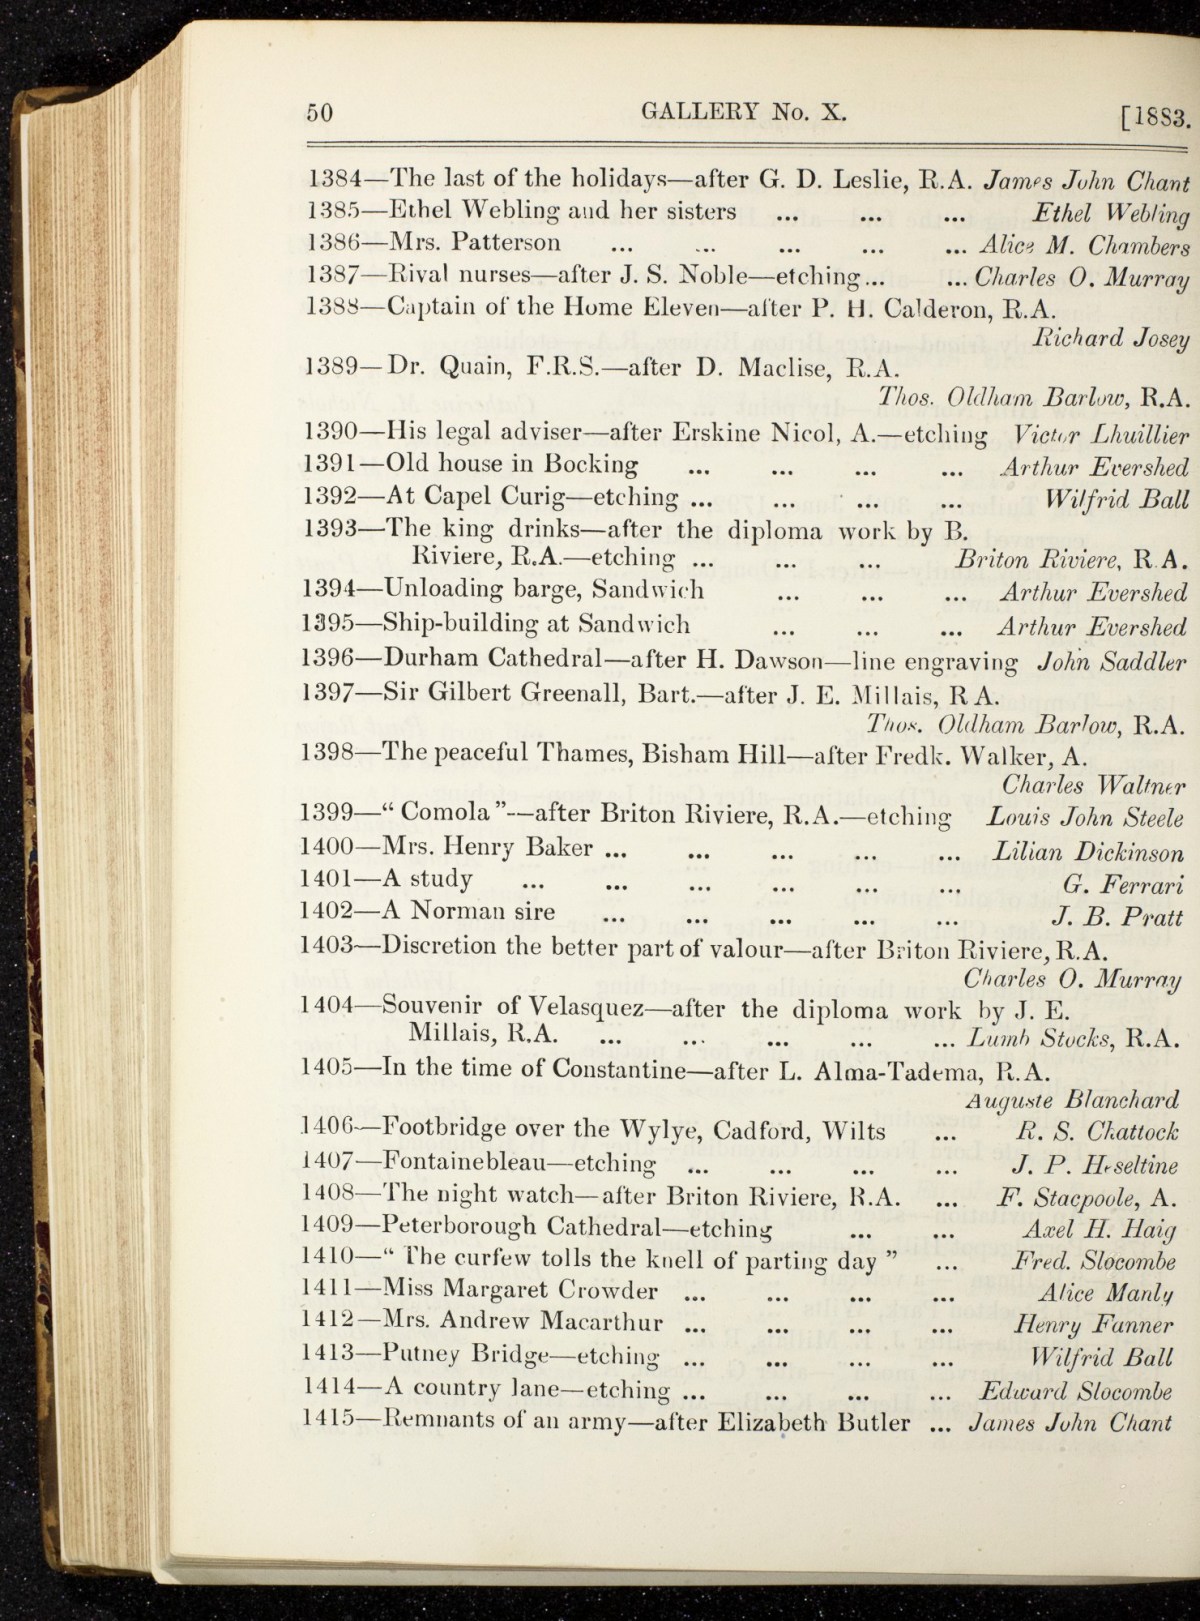 50 GALLERY No. X. [1883.
1384—The last of the holidays—after G. D. Leslie, R.A. James John Chant
1385—Ethel Webling and her sisters ... ... ... Ethel Webling
1386—Mrs. Patterson ... ... ... ... ... Alice M. Chambers
1387—Rival nurses—after J. S. Noble—etching... ... Charles O. Murray
1388—Captain of the Home Eleven—after P. H. Calderon, R.A.
Richard Josey
1389—Dr. Quain, F.R.S.—after D. Maclise, R.A.
Thos. Oldham Barlow, R.A.
1390—His legal adviser—after Erskine Nicol, A.—etching Victor Lhuillier
1391—Old house in Bocking ... ... ... ... Arthur Evershed
1392—At Capel Curig—etching ... ... ... ... Wilfrid Ball
1393—The king drinks—after the diploma work by B.
Riviere, R.A.—etching ... ... ... Briton Riviere, R.A.
1394—Unloading barge, Sandwich ... ... ... Arthur Evershed
1395—Ship-building at Sandwich ... ... ... Arthur Evershed
1396—Durham Cathedral—after H. Dawson—line engraving John Saddler
1397—Sir Gilbert Greenall, Bart.—after J. E. Millais, R A.
Thos. Oldham Barlow, R.A.
1398—The peaceful Thames, Bisham Hill—after Fredk. Walker, A.
Charles Waltner
1399—“ Comola ”—after Briton Riviere, R.A.—etching Louis John Steele
1400—Mrs. Henry Baker ... ... ... ... ... Lilian Dickinson
1401—A study ... ... ... ... ... ... G. Ferrari
1402—A Norman sire ... ... ... ... ... J. B. Pratt
1403—Discretion the better part of valour—after Briton Riviere, R.A.
Charles O. Murray
1404—Souvenir of Velasquez—after the diploma work by J. E.
Millais, R.A. ... ... ... ... ... Lumb Stocks, R.A.
1405—In the time of Constantine—after L. Alma-Tadema, R.A.
Auguste Blanchard
1406—Footbridge over the Wylye, Cadford, Wilts ... R. S. Chattock
1407—Fontainebleau—etching ... ... ... ... J. P. Heseltine
1408—The night watch—after Briton Riviere, R.A. ... F. Stacpoole, A.
1409—Peterborough Cathedral—etching ... ... Axel H. Haig
1410—“ The curfew tolls the knell of parting day ” ... Fred. Slocombe
1411—Miss Margaret Crowder ... ... ... ... Alice Manly
1412—Mrs. Andrew Macarthur ... ... ... ... Henry Fanner
1413—Putney Bridge—etching ... ... ... ... Wilfrid Ball
1414—A country lane—etching ... ... ... ... Edward Slocombe
1415—Remnants of an army—after Elizabeth Butler ... James John Chant